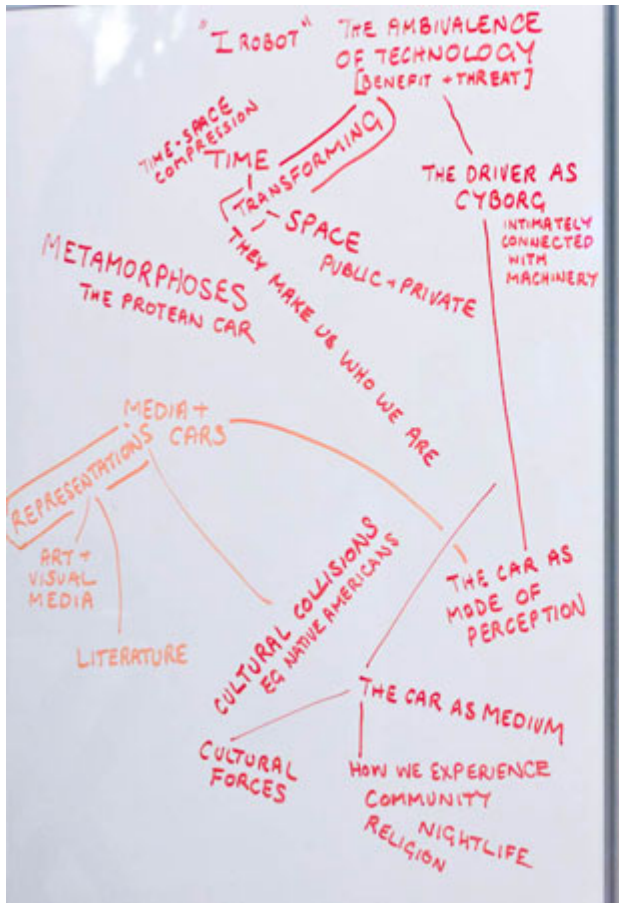 "I ROBOT"
THE AMBIVALENCE
OF TECHNOLOGY
[BENEFIT + THREAT]
TIME-SPACE
COMPRESSION
TIME
TRANSFORMING
SPACE
PUBLIC + PRIVATE
THE DRIVER AS
CYBORG
INTIMATELY
CONNECTED
WITH
MACHINERY
METAMORPHOSES
THE PROTEAN CAR
THEY MAKE US WHO WE ARE
MEDIA +
CARS
REPRESENTATIONS
ART +
VISUAL
MEDIA
LITERATURE
CULTURAL COLLISIONS
EG NATIVE AMERICANS
THE CAR AS
MODE OF
PERCEPTION
THE CAR AS MEDIUM
CULTURAL
FORCES
HOW WE EXPERIENCE
COMMUNITY
NIGHTLIFE
RELIGION